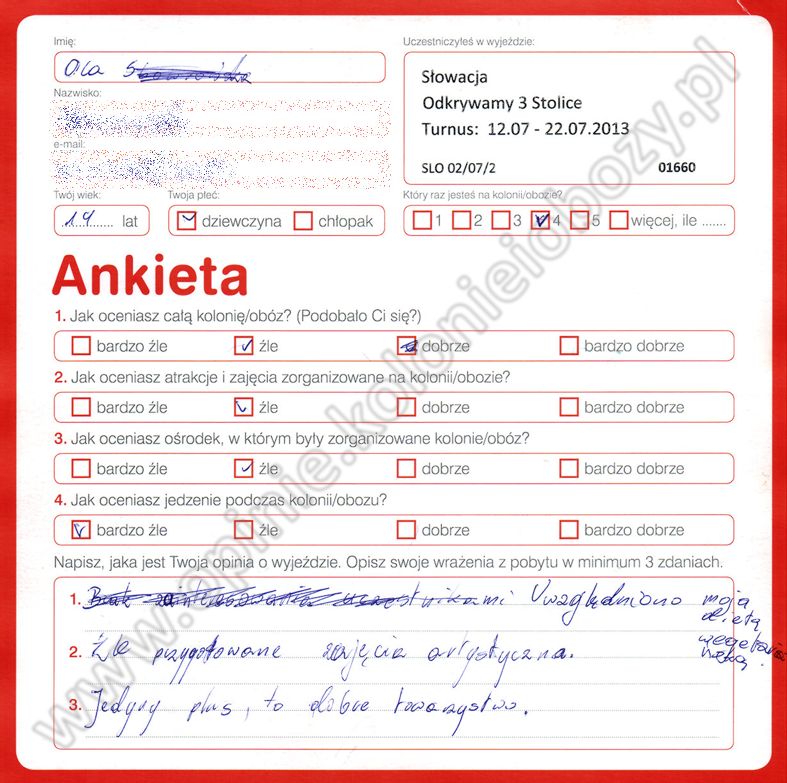 Imię:
Ola S
Uczestniczyłeś w wyjeździe:
Słowacja
Odkrywamy 3 Stolice
Turnus: 12.07 - 22.07.2013
SLO 02/07/2 01660
Nazwisko:
e-mail:
Twój wiek:
14 lat
Twoja płeć:
dziewczyna chłopak
Który raz jesteś na kolonii/obozie?
1 2 3 4 5 więcej, ile .......
Ankieta
1. Jak oceniasz całą kolonię/obóz? (Podobało Ci się?)
bardzo źle źle dobrze bardzo dobrze
2. Jak oceniasz atrakcje i zajęcia zorganizowane na kolonii/obozie?
bardzo źle źle dobrze bardzo dobrze
3. Jak oceniasz ośrodek, w którym były zorganizowane kolonie/obóz?
bardzo źle źle dobrze bardzo dobrze
4. Jak oceniasz jedzenie podczas kolonii/obozu?
bardzo źle źle dobrze bardzo dobrze
Napisz, jaka jest Twoja opinia o wyjeździe. Opisz swoje wrażenia z pobytu w minimum 3 zdaniach.
1. Uwzględniono moja
dietą
wegetariań
ską.
2. Źle przygotowane zajęcia artystyczna.
3. Jedyny plus, to dobre towarzystwo.
www.opinie.kolonieiobozy.pl